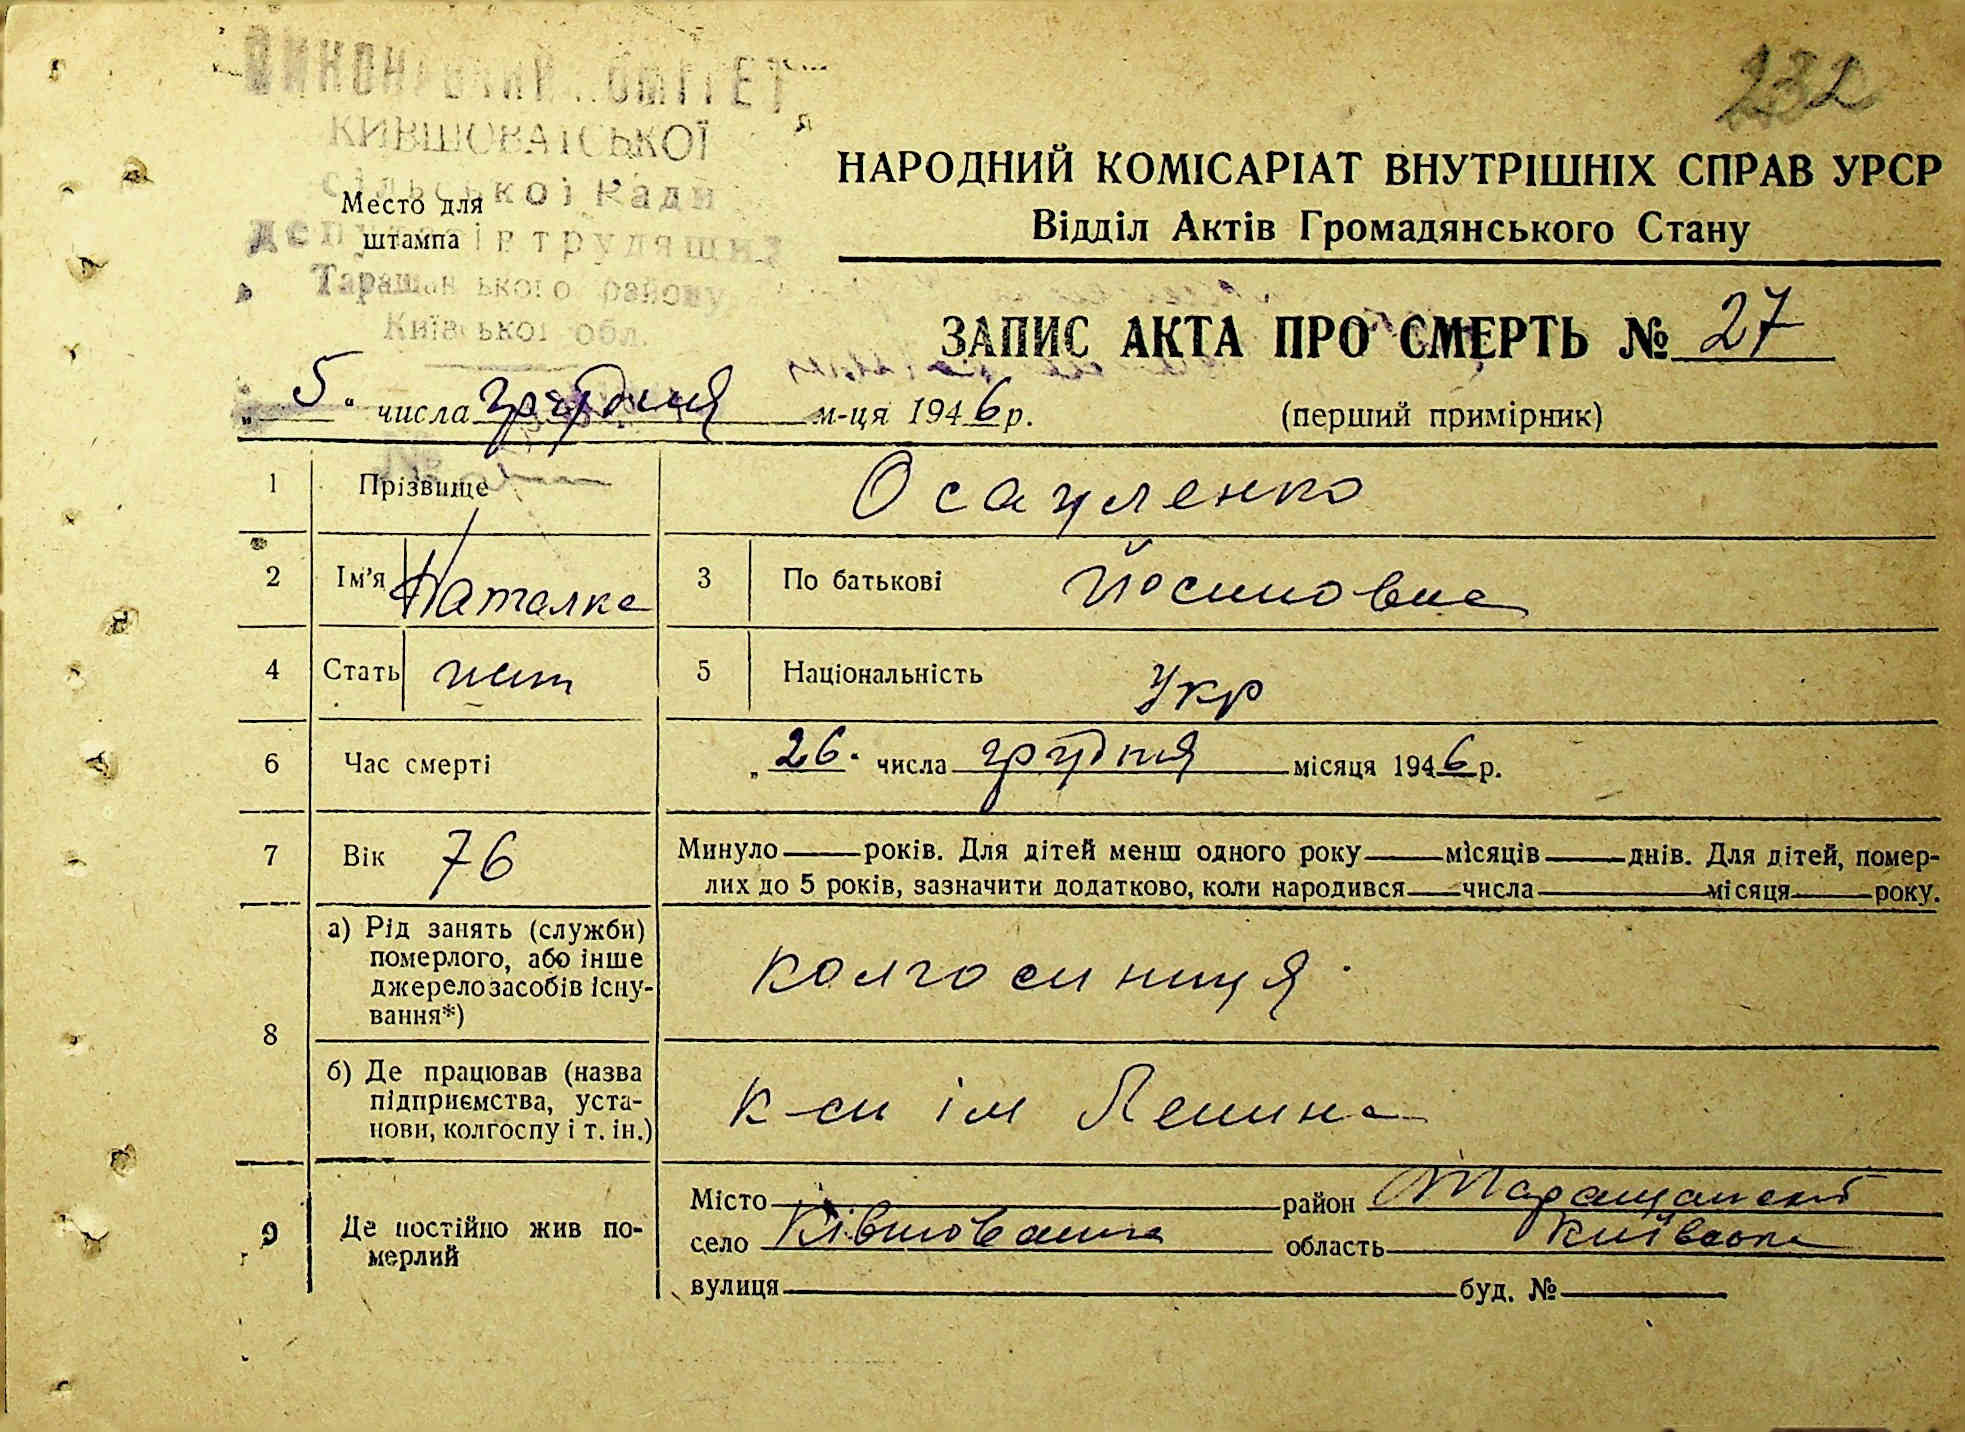 232
ВИКОНАВЧИЙ КОМІТЕТ
КИВШОВАТСЬКОЇ
сільської Ради
депутатів трудящих
Таращанського району
Київської обл.
Место для
штампа
НАРОДНИЙ КОМІСАРІАТ ВНУТРІШНІХ СПРАВ УРСР
Відділ Актів Громадянського Стану
ЗАПИС АКТА ПРО СМЕРТЬ № 27
„5“ числа грудня м-ця 1946 р.
(перший примірник)
1 Прізвище Осауленко
2 Ім'я Наталка 3 По батькові Йосиповна
4 Стать жін 5 Національність Укр
6 Час смерті „26“ числа грудня місяця 1946 р.
7 Вік 76 Минуло років. Для дітей менш одного року місяців днів. Для дітей, помер-
лих до 5 років, зазначити додатково, коли народився числа місяця року.
8 а) Рід занять (служби)
померлого, або інше
джерело засобів існу-
вання*)
колгоспниця
б) Де працював (назва
підприємства, уста-
нови, колгоспу і т. ін.)
к-сп ім Леніна
9 Де постійно жив по-
мерлий
Місто район Таращанский
село Ківшовата область Київська
вулиця буд. №